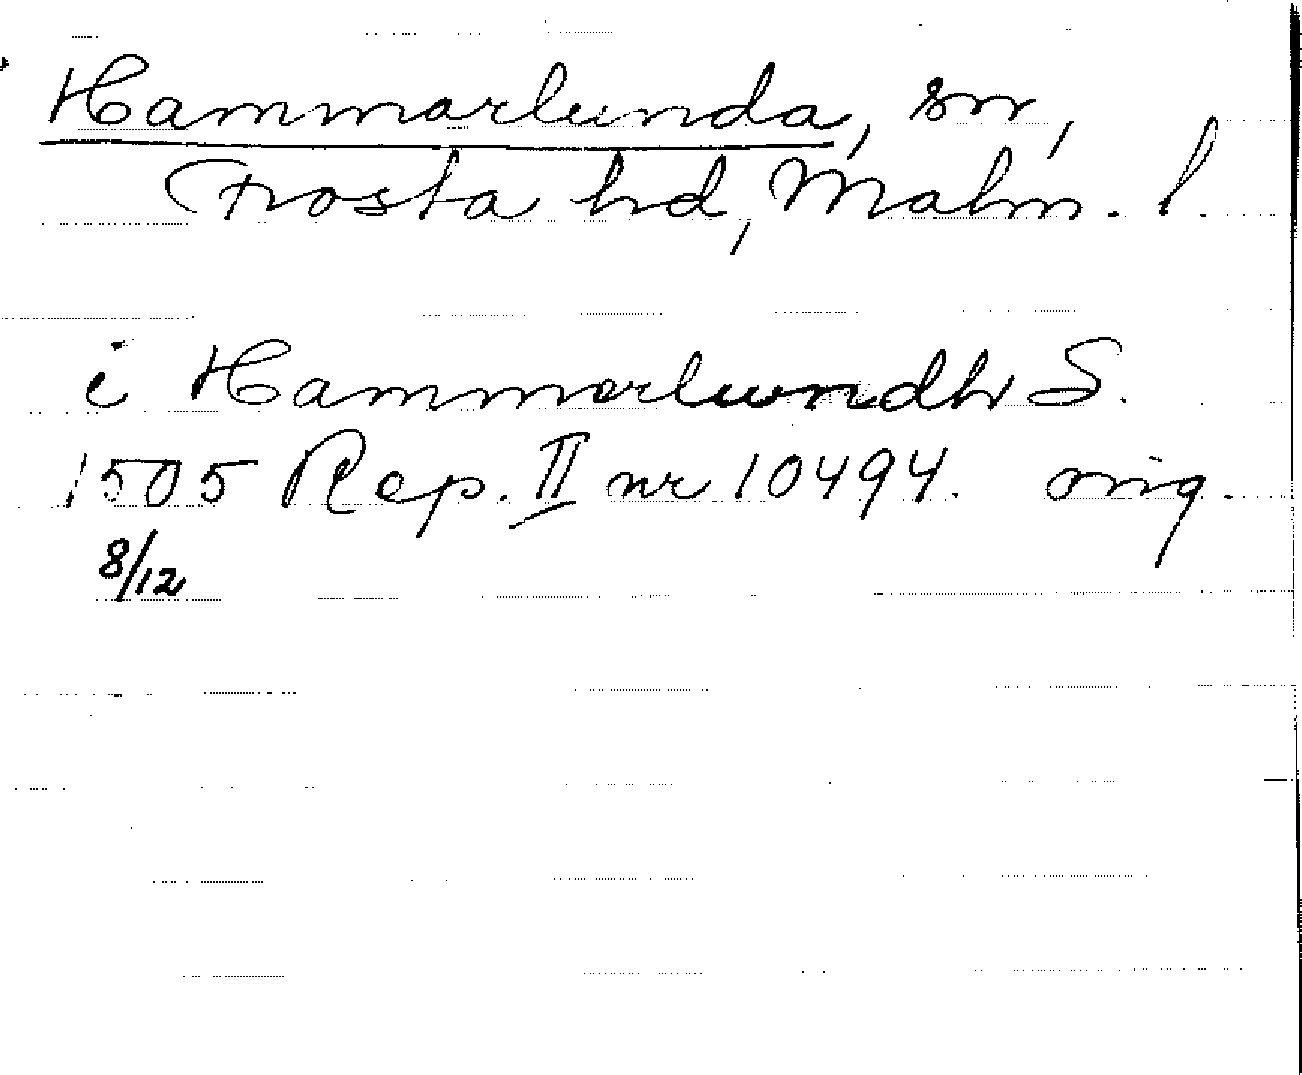 Hammarlunda, sn,
Frosta hd, Malm. l.
i Hammarlwndh S.
1505 Rep. II nr 10494. orig.
8/12